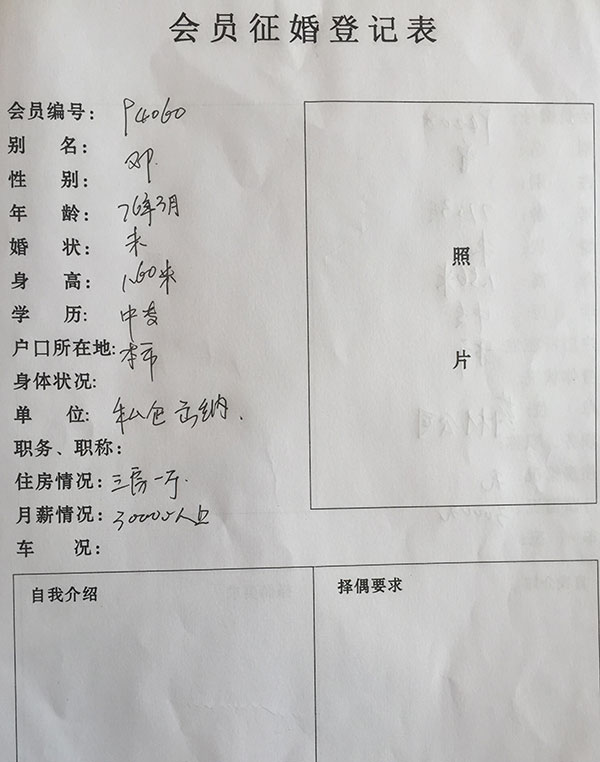 会员征婚登记表
会员编号: P4060
别 名:
性 别:
年 龄: 76年3月
婚 状: 未
身 高: 1.60米
学 历: 中专
户口所在地: 本市
身体状况:
单 位: 私企 出纳.
职务、职称:
住房情况: 三房一厅.
月薪情况: 3000
车 况:
照
片
自我介绍
择偶要求